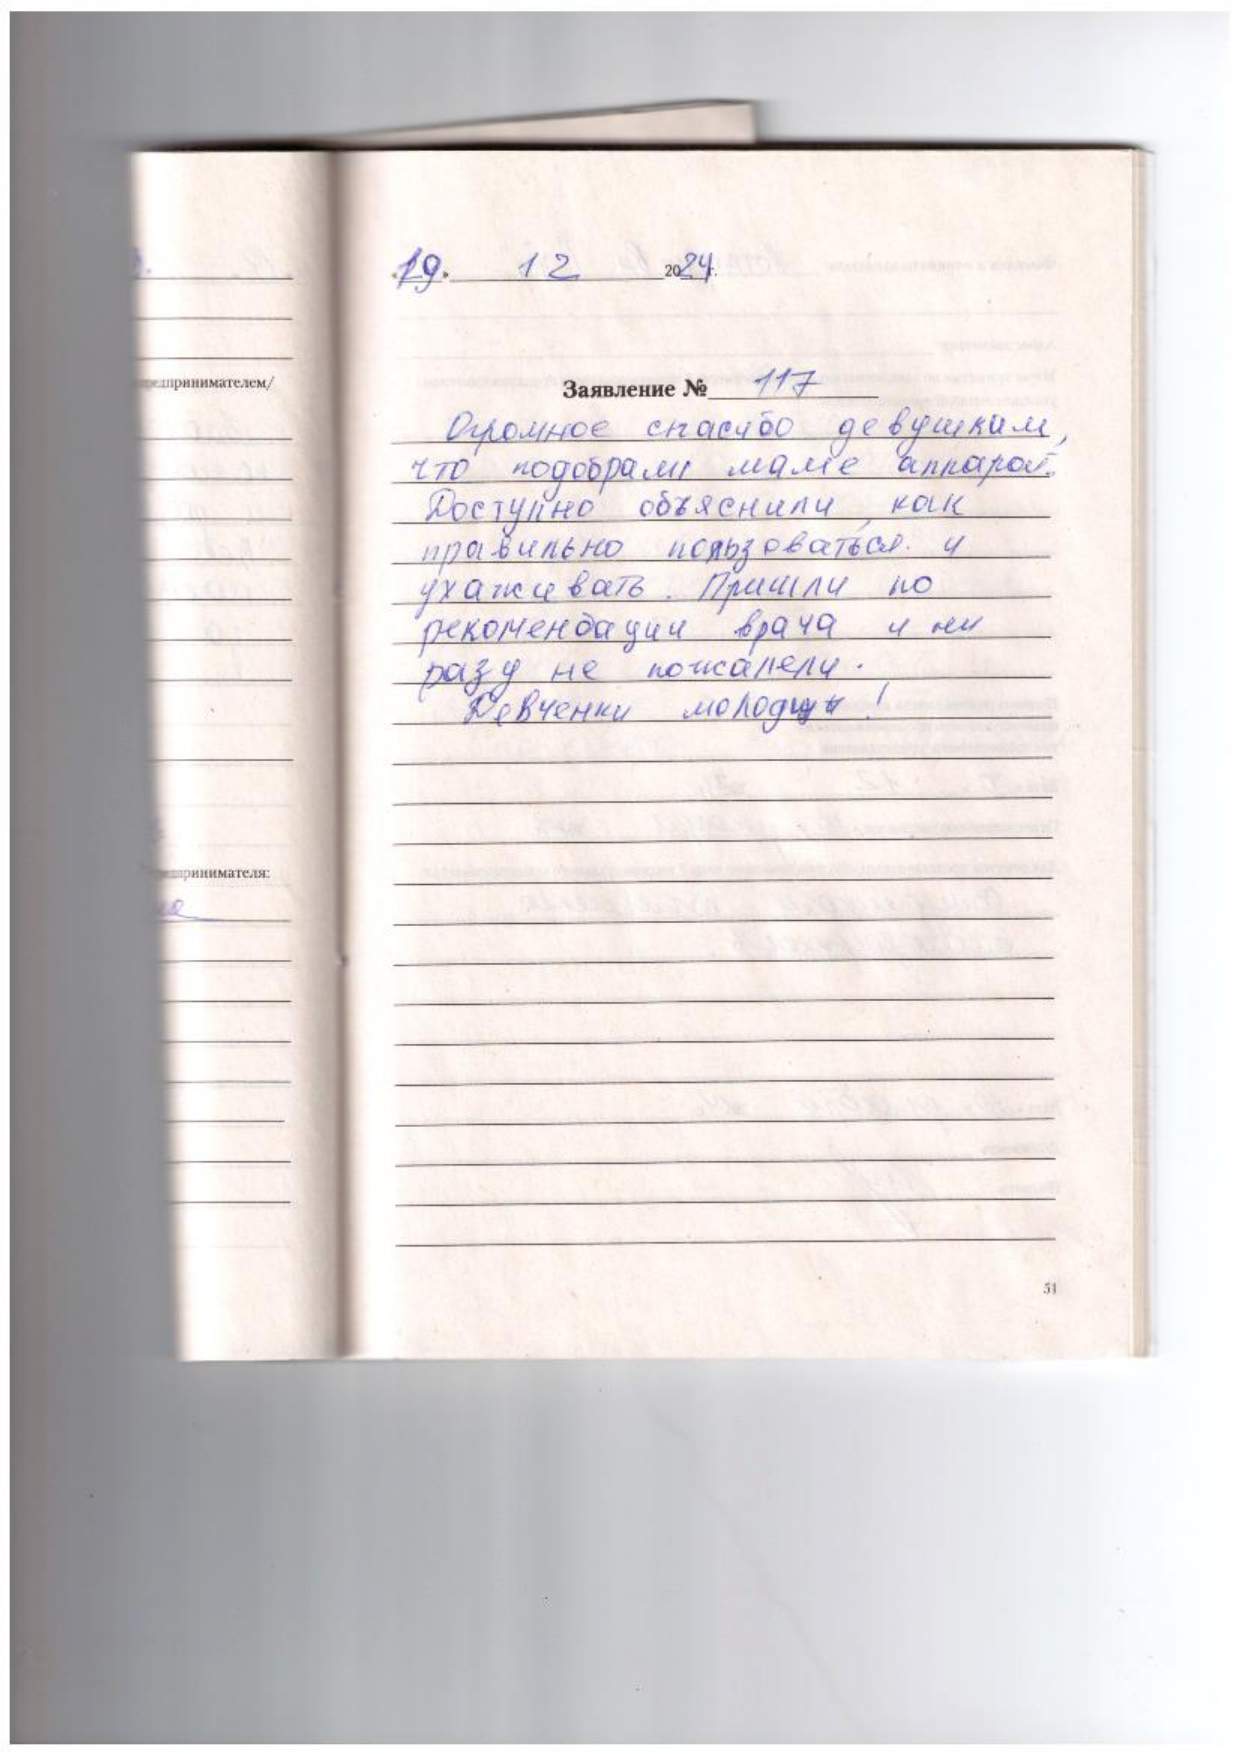 «19» 12 2024г.
едпринимателем/
Заявление № 117
Огромное спасибо девушкам,
что подобрали маме аппарат.
Доступно объяснили, как
правильно пользоваться и
ухаживать. Пришли по
рекомендации врача и ни
разу не пожалели.
Девченки молодцы!
принимателя:
51